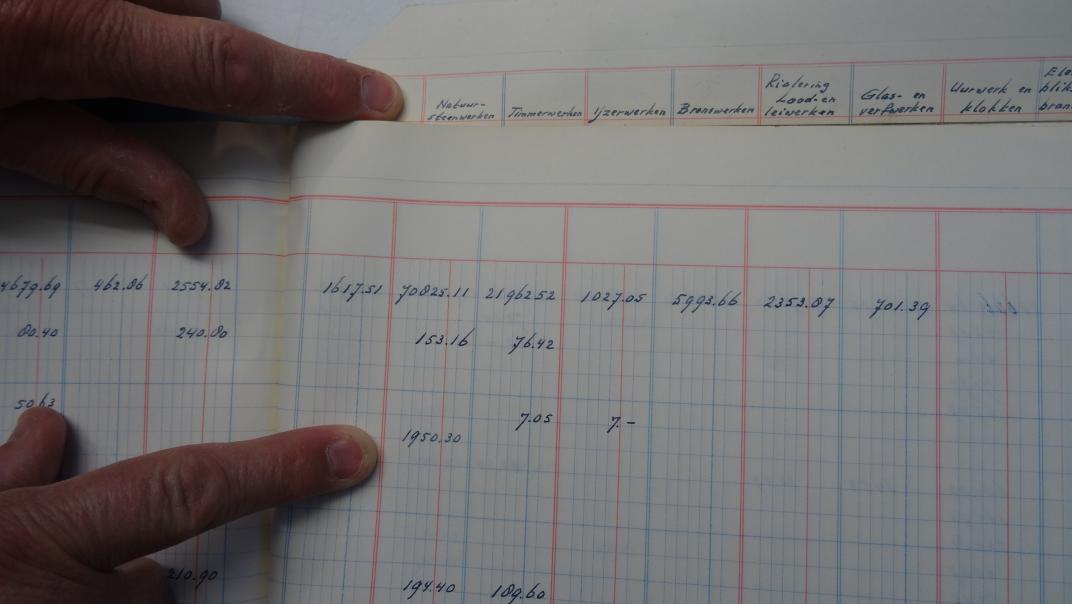 Natuur-
steenwerken
Timmerwerken
IJzerwerken
Bronswerken
Riolering
Lood-en
leiwerken
Glas- en
verfwerken
Uurwerk en
klokken
4679.69 462.86 2554.82 1617.51 70825.11 21962.52 1027.05 5993.66 2353.87 701.39
80.40 240.80 153.16 76.42
50.63 7.05 7.-
1950.30
210.90 194.40 189.60